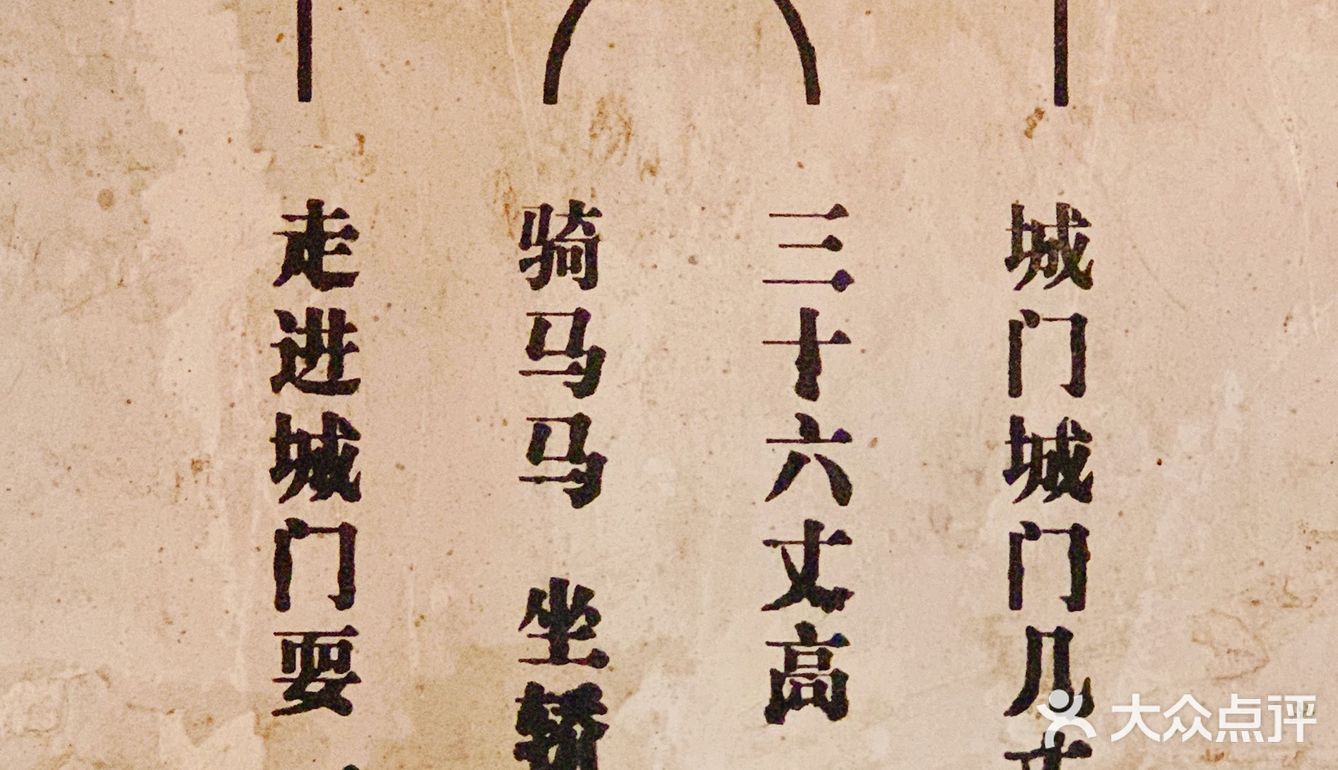 城门城门几丈
三十六丈高
骑马马 坐轿
走进城门耍
大众点评